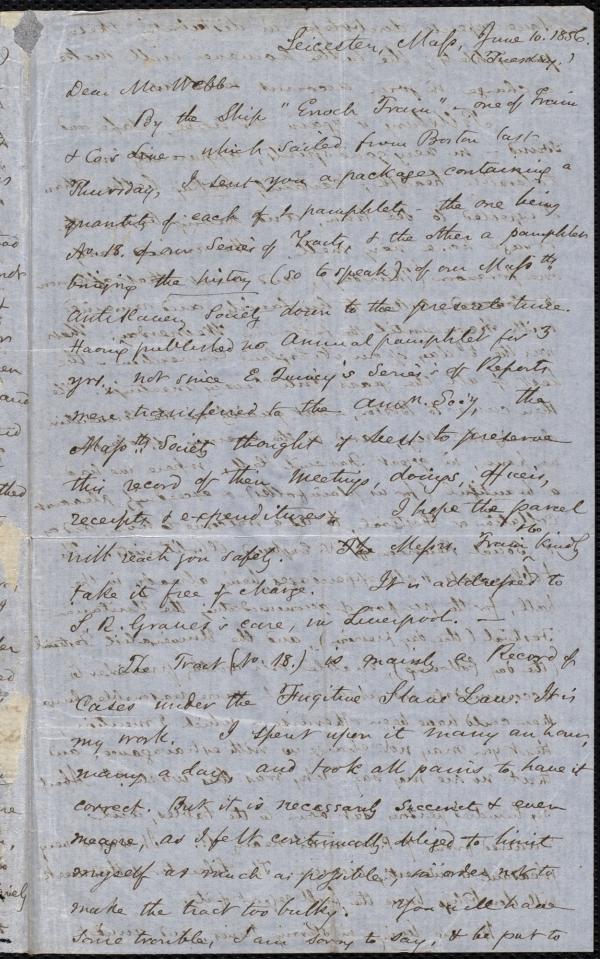 Leicester, Mass, June 10. 1856.
(Tuesday.)
Dear Mr Webb
By the Ship "Enoch Train" - one of Train
& Co.'s Line - which sailed from Boston last
Thursday, I sent you a package containing a
quantity of each of 2 pamphlets - the one being
No. 18. of our Series of Tracts, & the other a pamphlet
bringing the history (so to speak) of our Massts
AntiSlavery Society down to the present time.
Having published no Annual pamphlet for 3
yrs. not since E. Quincy's Series of Reports
were transferred to the Amn. Socy, the
Massts Society thought it best to preserve
this record of their meetings, doings, officers,
receipts & expenditures. I hope the parcel
will reach you safely. The Messrs. Train kindly
take it free of charge. It is addressed to
S. R. Graves's care, in Liverpool. —
The Tract (No. 18.) is mainly a Record of
Cases under the Fugitive Slave Law. It is
my work. I spent upon it many an hour,
many a day, and took all pains to have it
correct. But it is necessarily succinct & even
meagre, as I felt continually obliged to limit
myself as much as possible, in order not to
make the tract too bulky. You will have
some trouble, I am sorry to say, & be put to